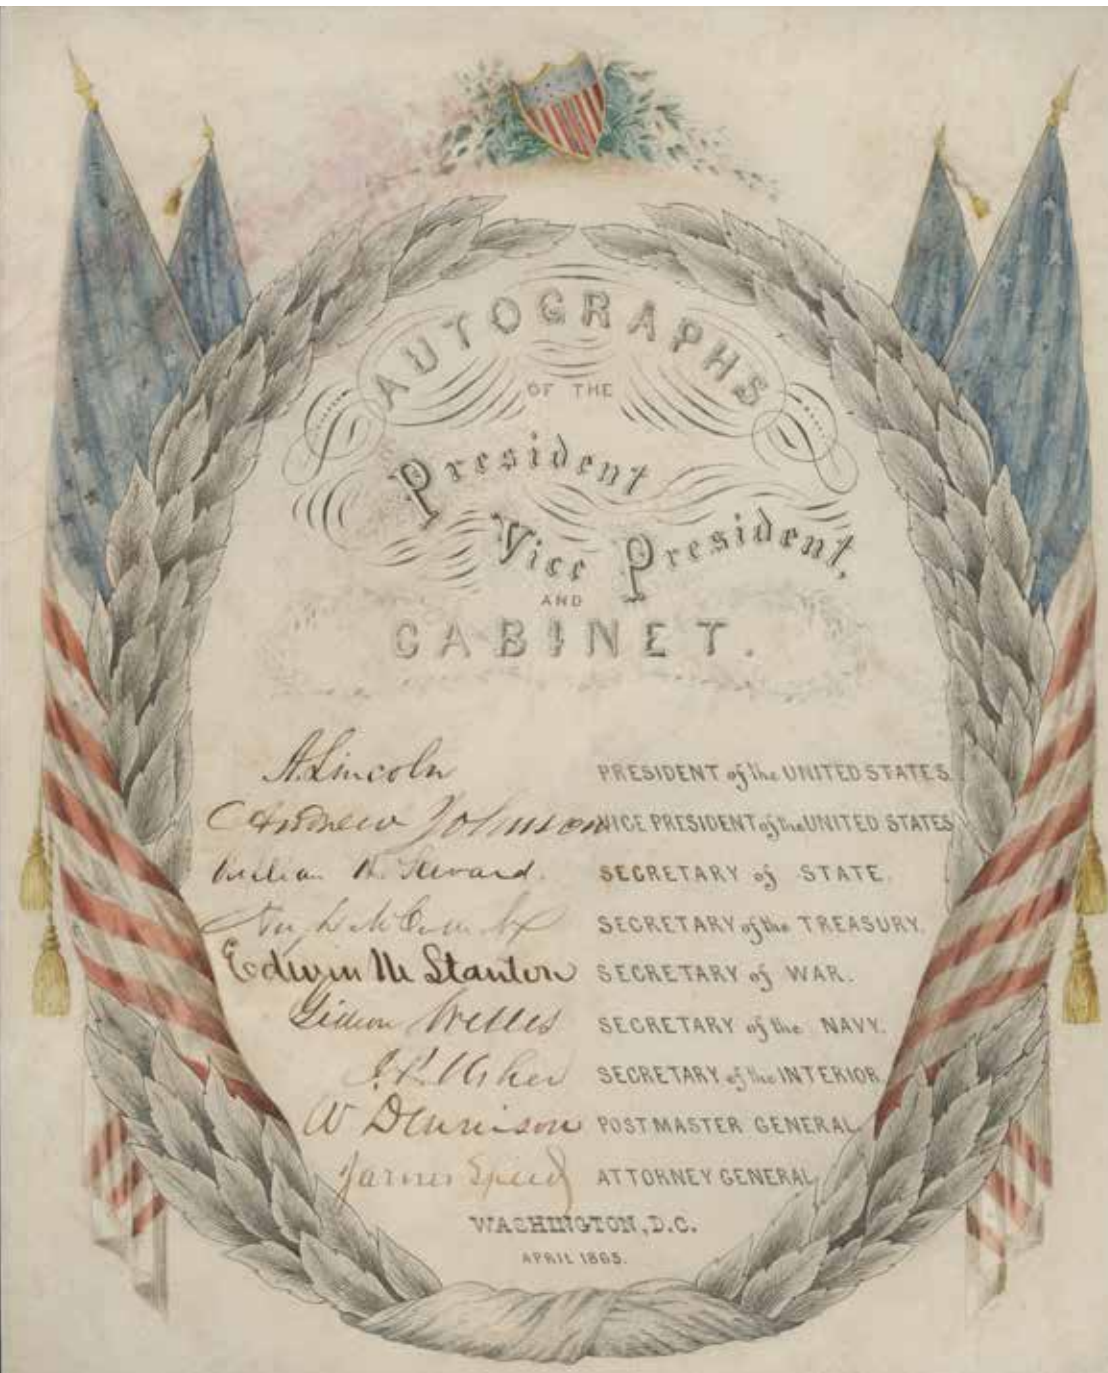 AUTOGRAPHS
OF THE
President
Vice President,
AND
CABINET.
A. Lincoln PRESIDENT of the UNITED STATES.
Andrew Johnson VICE PRESIDENT of the UNITED STATES
William H. Seward. SECRETARY of STATE.
SECRETARY of the TREASURY.
Edwin M Stanton SECRETARY of WAR.
Gideon Welles SECRETARY of the NAVY.
J. P. Usher SECRETARY of the INTERIOR
W Dennison POSTMASTER GENERAL.
James Speed ATTORNEY GENERAL,
WASHINGTON, D.C.
APRIL 1865.